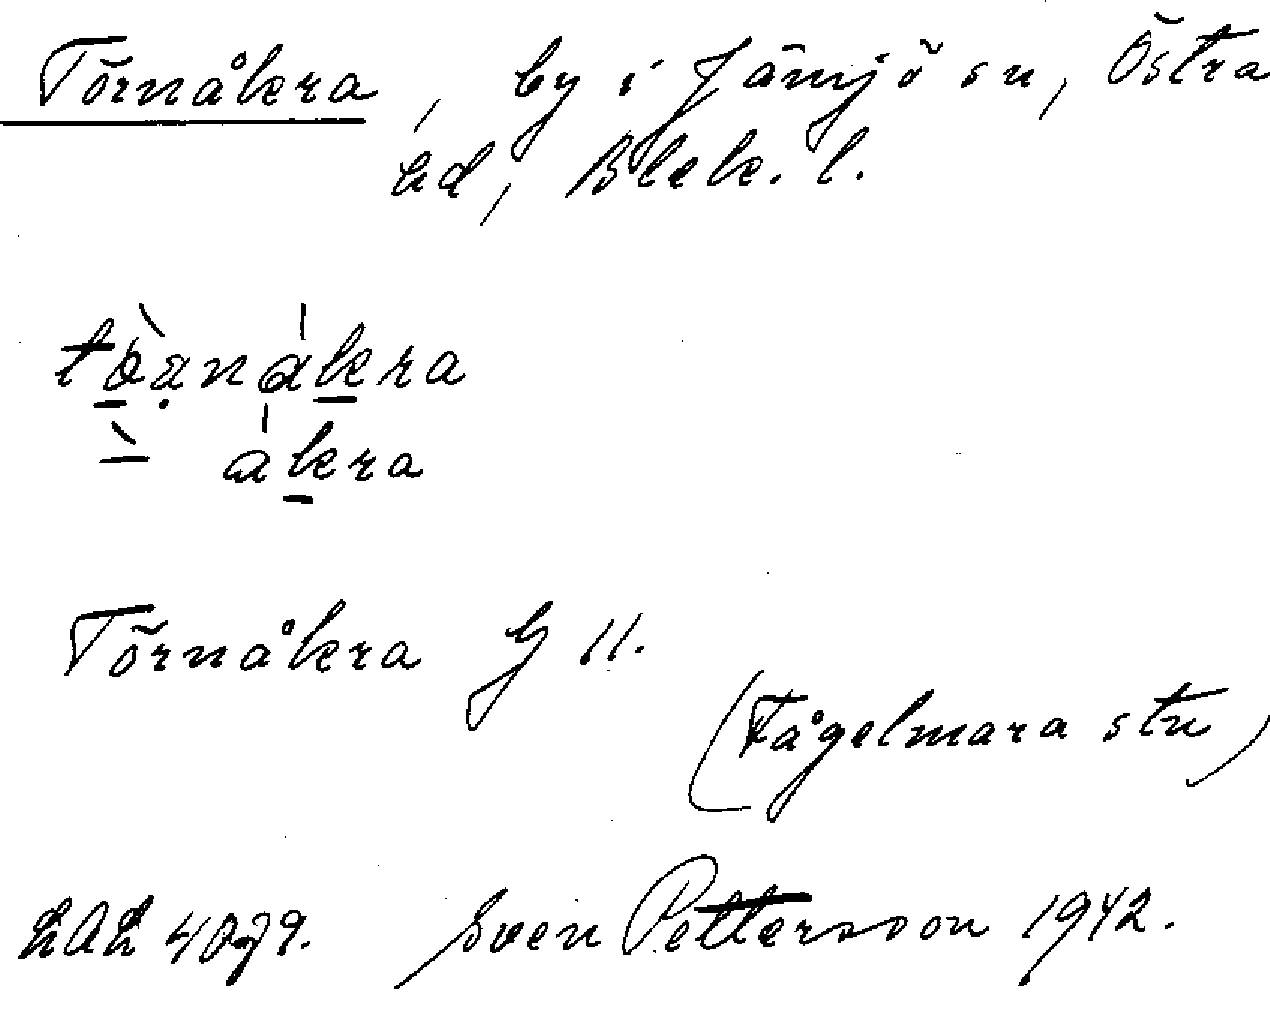 Törnåkra, by i Jämjö sn, Östra
hd, Blek. l.
Törnåkra G 11.
(Fågelmara stn)
LAL 4079. Sven Pettersson 1942.